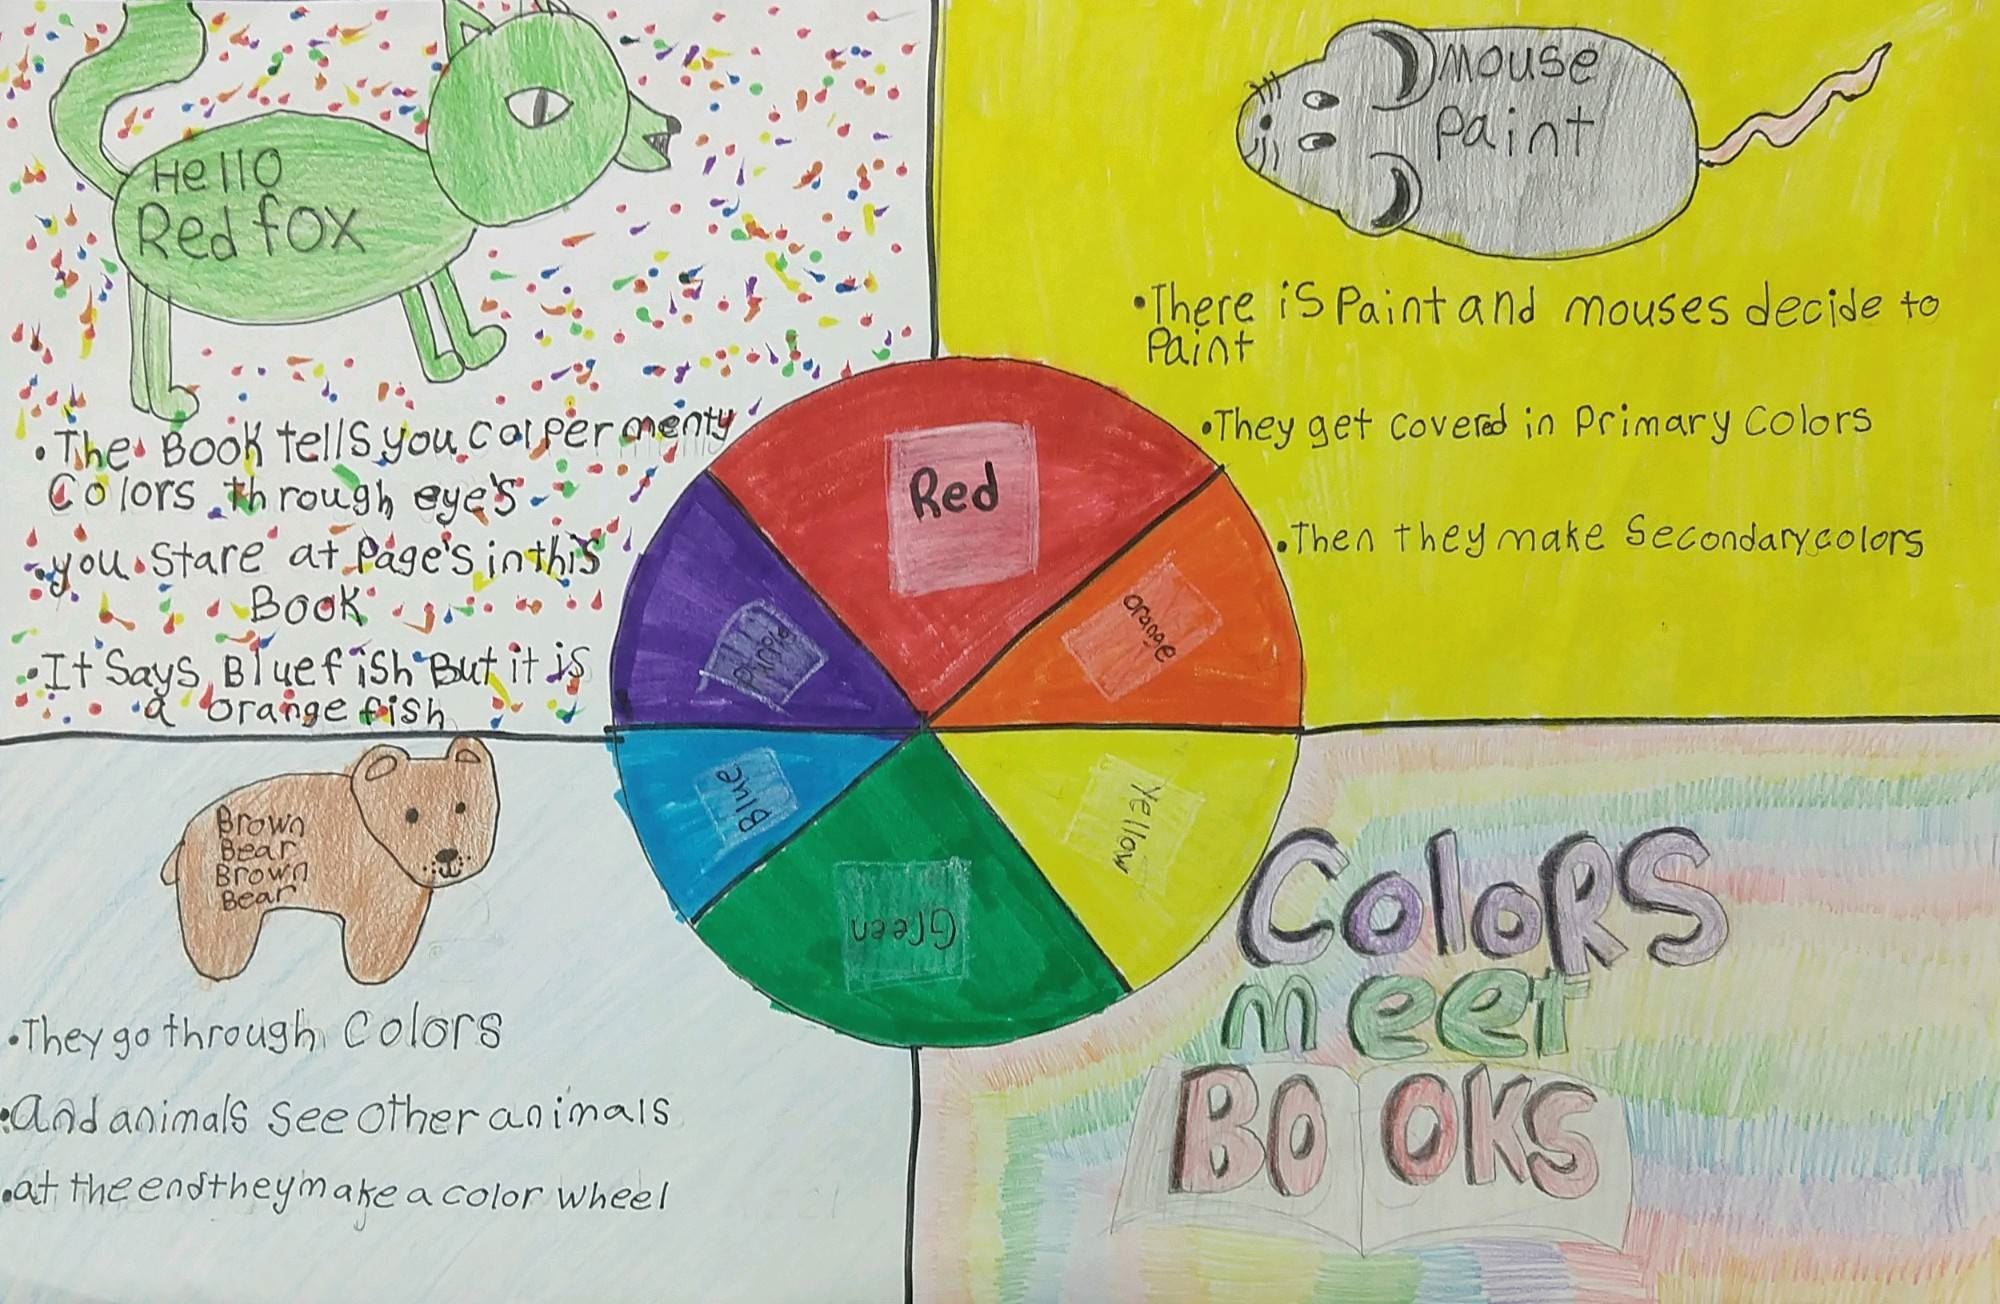 Hello
Red fox
• The Book tells you calper menty
Colors through eye's
• you stare at Page's in this
Book
• It Says Bluefish But it is
a orange fish
Mouse
Paint
• There is Paint and mouses decide to
Paint
• They get covered in Primary Colors
• Then they make Secondary colors
Red
Orange
Yellow
Green
Blue
Purple
Brown
Bear
Brown
Bear
• They go through Colors
• and animals see other animals
• at the end they make a color wheel
Colors
meet
BOOKS